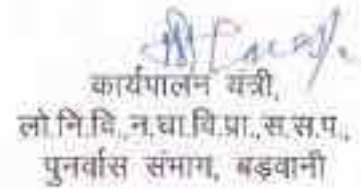 कार्यपालन यंत्री,
लो.नि.वि.,न.घा.वि.प्रा.,स.स.प.,
पुनर्वास संभाग, बड़वानी